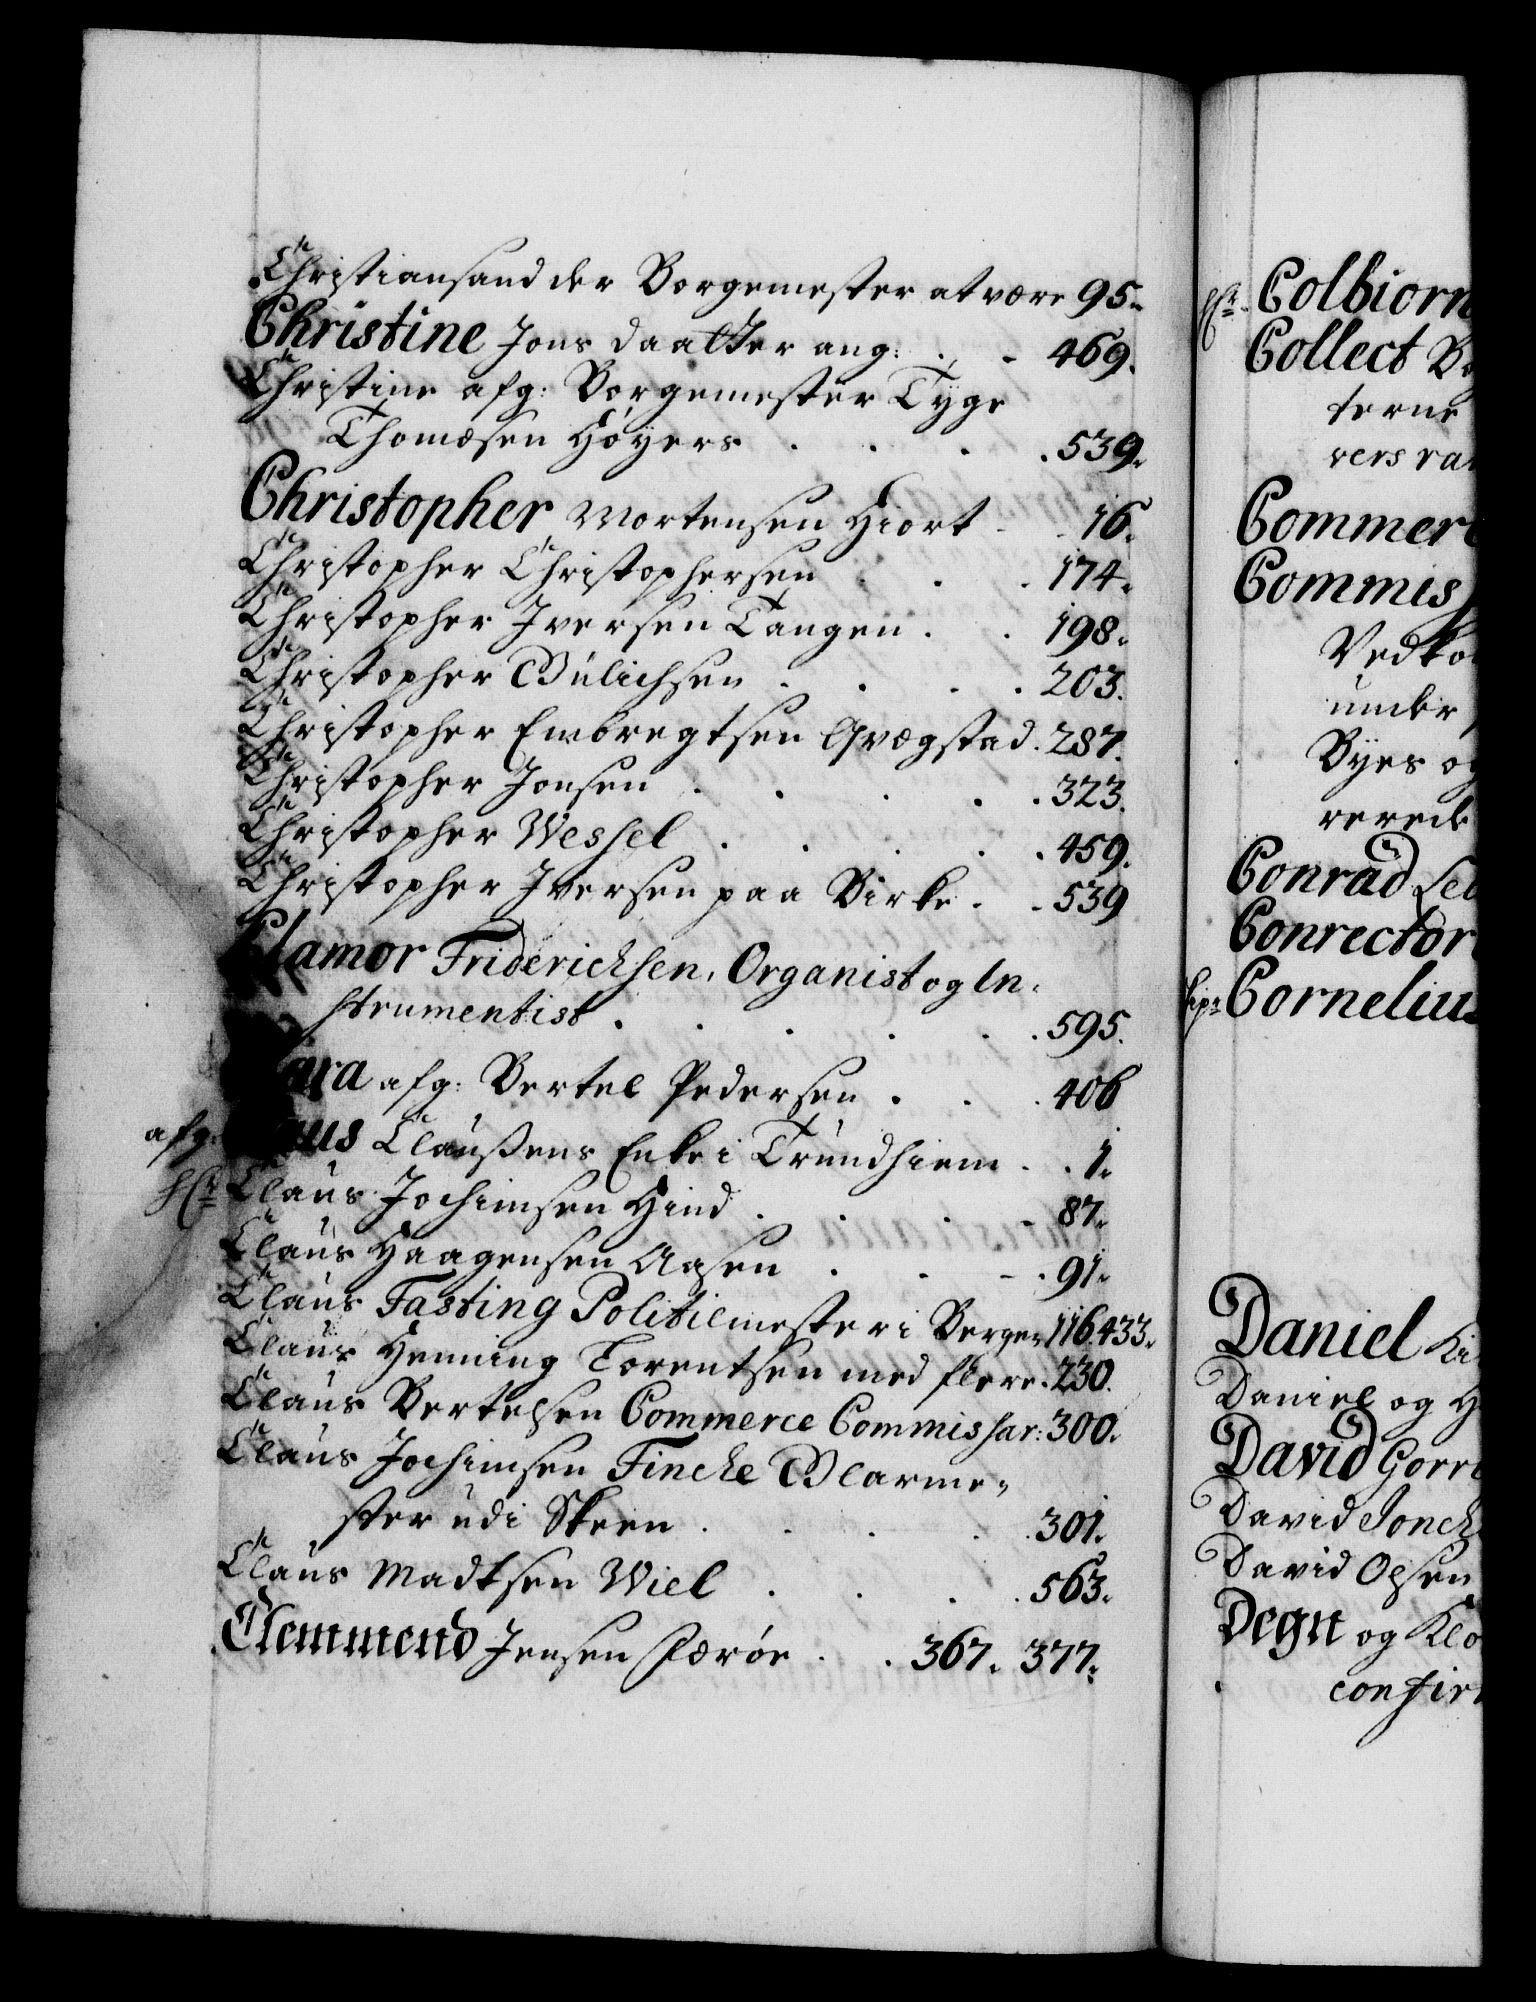 Christiansand der Borgemester at være 95.
Christine Jons daatter ang: . . 469.
Christine afg: Borgemester Tyge
Thomæsen Høyers . . . . 539.
Christopher Mortensen Hiort - . 16.
Christopher Christophersen . . . 174.
Christopher Iversen Tangen . . 198.
Christopher Bulichsen . . . . 203.
Christopher Embregtsen Qvægstad . 287.
Christopher Jonsen . . . . . 323.
Christopher Wessel . . . . . 459.
Christopher Iversen paa Birke . . 539
Clamor Friderichsen, Organist og In,
strumentist . . . . . . 595.
Clara afg: Bertel Pedersen . . . 406
afg: Claus Claußens Enke i Trundhiem . . 1.
Claus Jochimsen Hind . . . . 87.
Claus Haagensen Aasen . . . . 91.
Claus Fasting Politiemester i Bergen 116. 433.
Claus Henning Torentsen med flere . 230.
Claus Bertelsen Commerce Commissar: 300.
Claus Jochimsen Fincke Blarme,
ster udi Skeen . . . . . 301.
Claus Madtsen Wiel . . . . 563.
Clemmend Jensen Færøe . . 367. 377.
Colbiorn
Collect
terne
Commer
Commis
Vedko
under
Byes og
Conrad
Conrector
Cornelius
Daniel
Daniel og H
David Gorr
David Jonch
David Olsen
Degn og Klo
confir